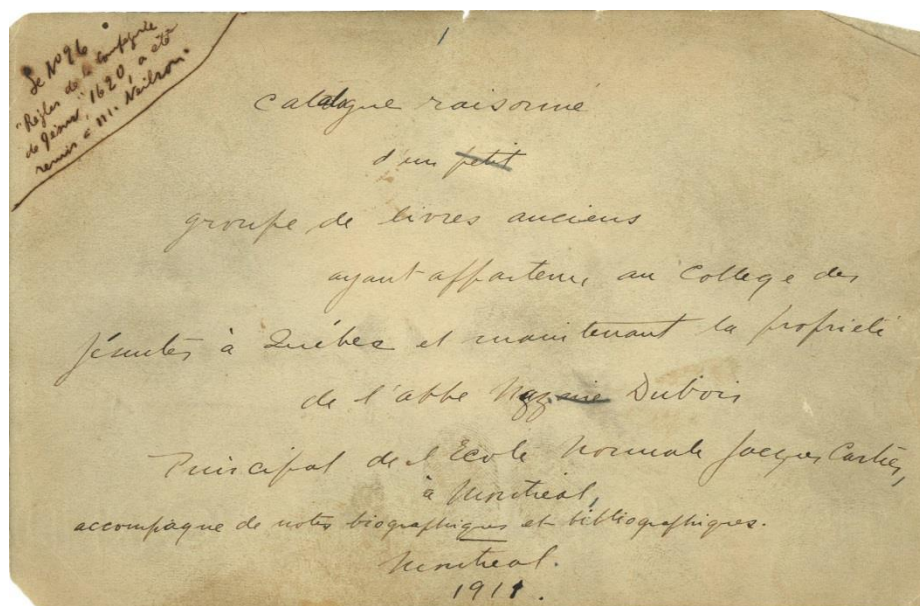 Le No 96
"Règles de la Compagnie
de Jésus", 1620, a été
remis à M. Neilson.
1
Catalogue raisonné
d'un petit
groupe de livres anciens
ayant appartenu au Collège des
Jésuites à Québec et maintenant la propriété
de l'abbé Nazaire Dubois
Principal de l'Ecole Normale Jacques Cartier,
à Montréal,
accompagné de notes biographiques et bibliographiques.
Montreal.
1911.